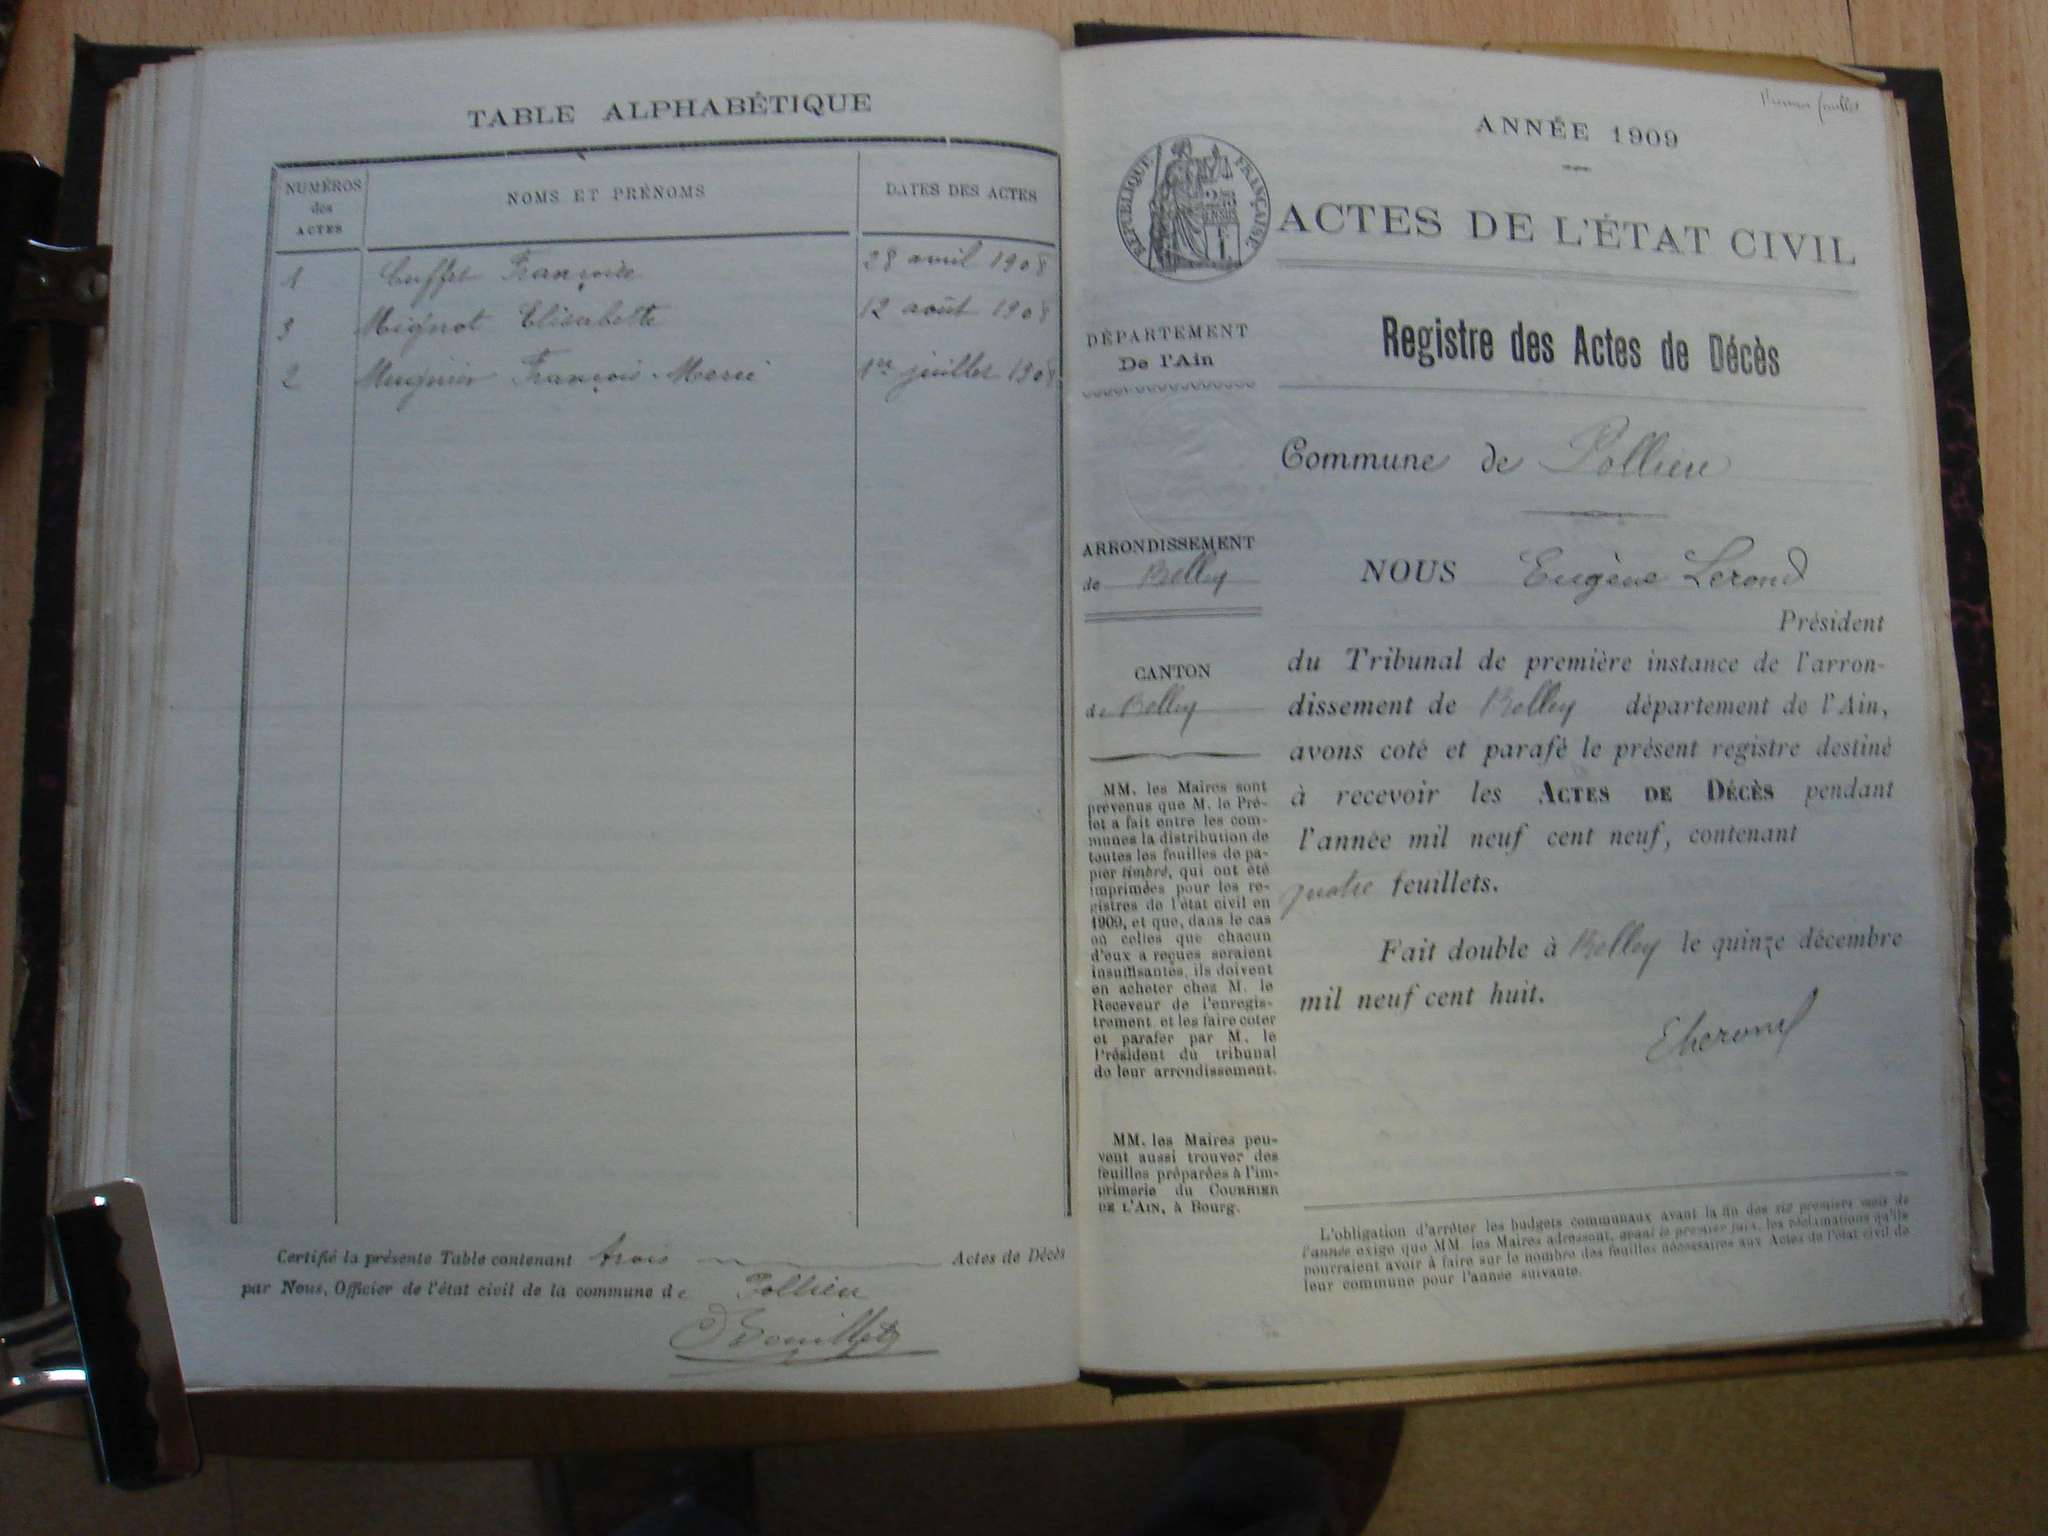 TABLE ALPHABÉTIQUE
NUMÉROS des ACTES
NOMS ET PRÉNOMS
DATES DES ACTES
1 Cuffet Françoise 28 avril 1908
3 Mignot Elisabette 12 août 1908
2 Mugnier François-Marie 1er juillet 1908
Certifié la présente Table contenant trois Actes de Décès
par Nous, Officier de l'état civil de la commune de Pollieu
Premier feuillet
ANNÉE 1909
RÉPUBLIQUE FRANÇAISE
ACTES DE L'ÉTAT CIVIL
DÉPARTEMENT
De l'Ain
Registre des Actes de Décès
Commune de Pollieu
ARRONDISSEMENT
de Belley
CANTON
de Belley
MM. les Maires sont
prévenus que M. le Pré-
fet a fait entre les com-
munes la distribution de
toutes les feuilles de pa-
pier timbré, qui ont été
imprimées pour les re-
gistres de l'état civil en
1909, et que, dans le cas
où celles que chacun
d'eux a reçues seraient
insuffisantes, ils doivent
en acheter chez M. le
Receveur de l'enregis-
trement et les faire coter
et parafer par M. le
Président du tribunal
de leur arrondissement.
MM. les Maires peu-
vent aussi trouver des
feuilles préparées à l'im-
primerie du COURRIER
DE L'AIN, à Bourg.
NOUS Eugène Lerond
Président
du Tribunal de première instance de l'arron-
dissement de Belley département de l'Ain,
avons coté et parafé le présent registre destiné
à recevoir les ACTES DE DÉCÈS pendant
l'année mil neuf cent neuf, contenant
quatre feuillets.
Fait double à Belley le quinze décembre
mil neuf cent huit.
ELerond
L'obligation d'arrêter les budgets communaux avant la fin des six premiers mois de
l'année exige que MM. les Maires adressent, avant le premier juin, les réclamations qu'ils
pourraient avoir à faire sur le nombre des feuilles nécessaires aux Actes de l'état civil de
leur commune pour l'année suivante.